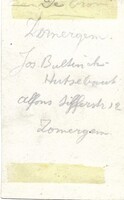 Zomergem.
Jos Bultinck
Hutsebout
Alfons Sifferstr 12
Zomergem